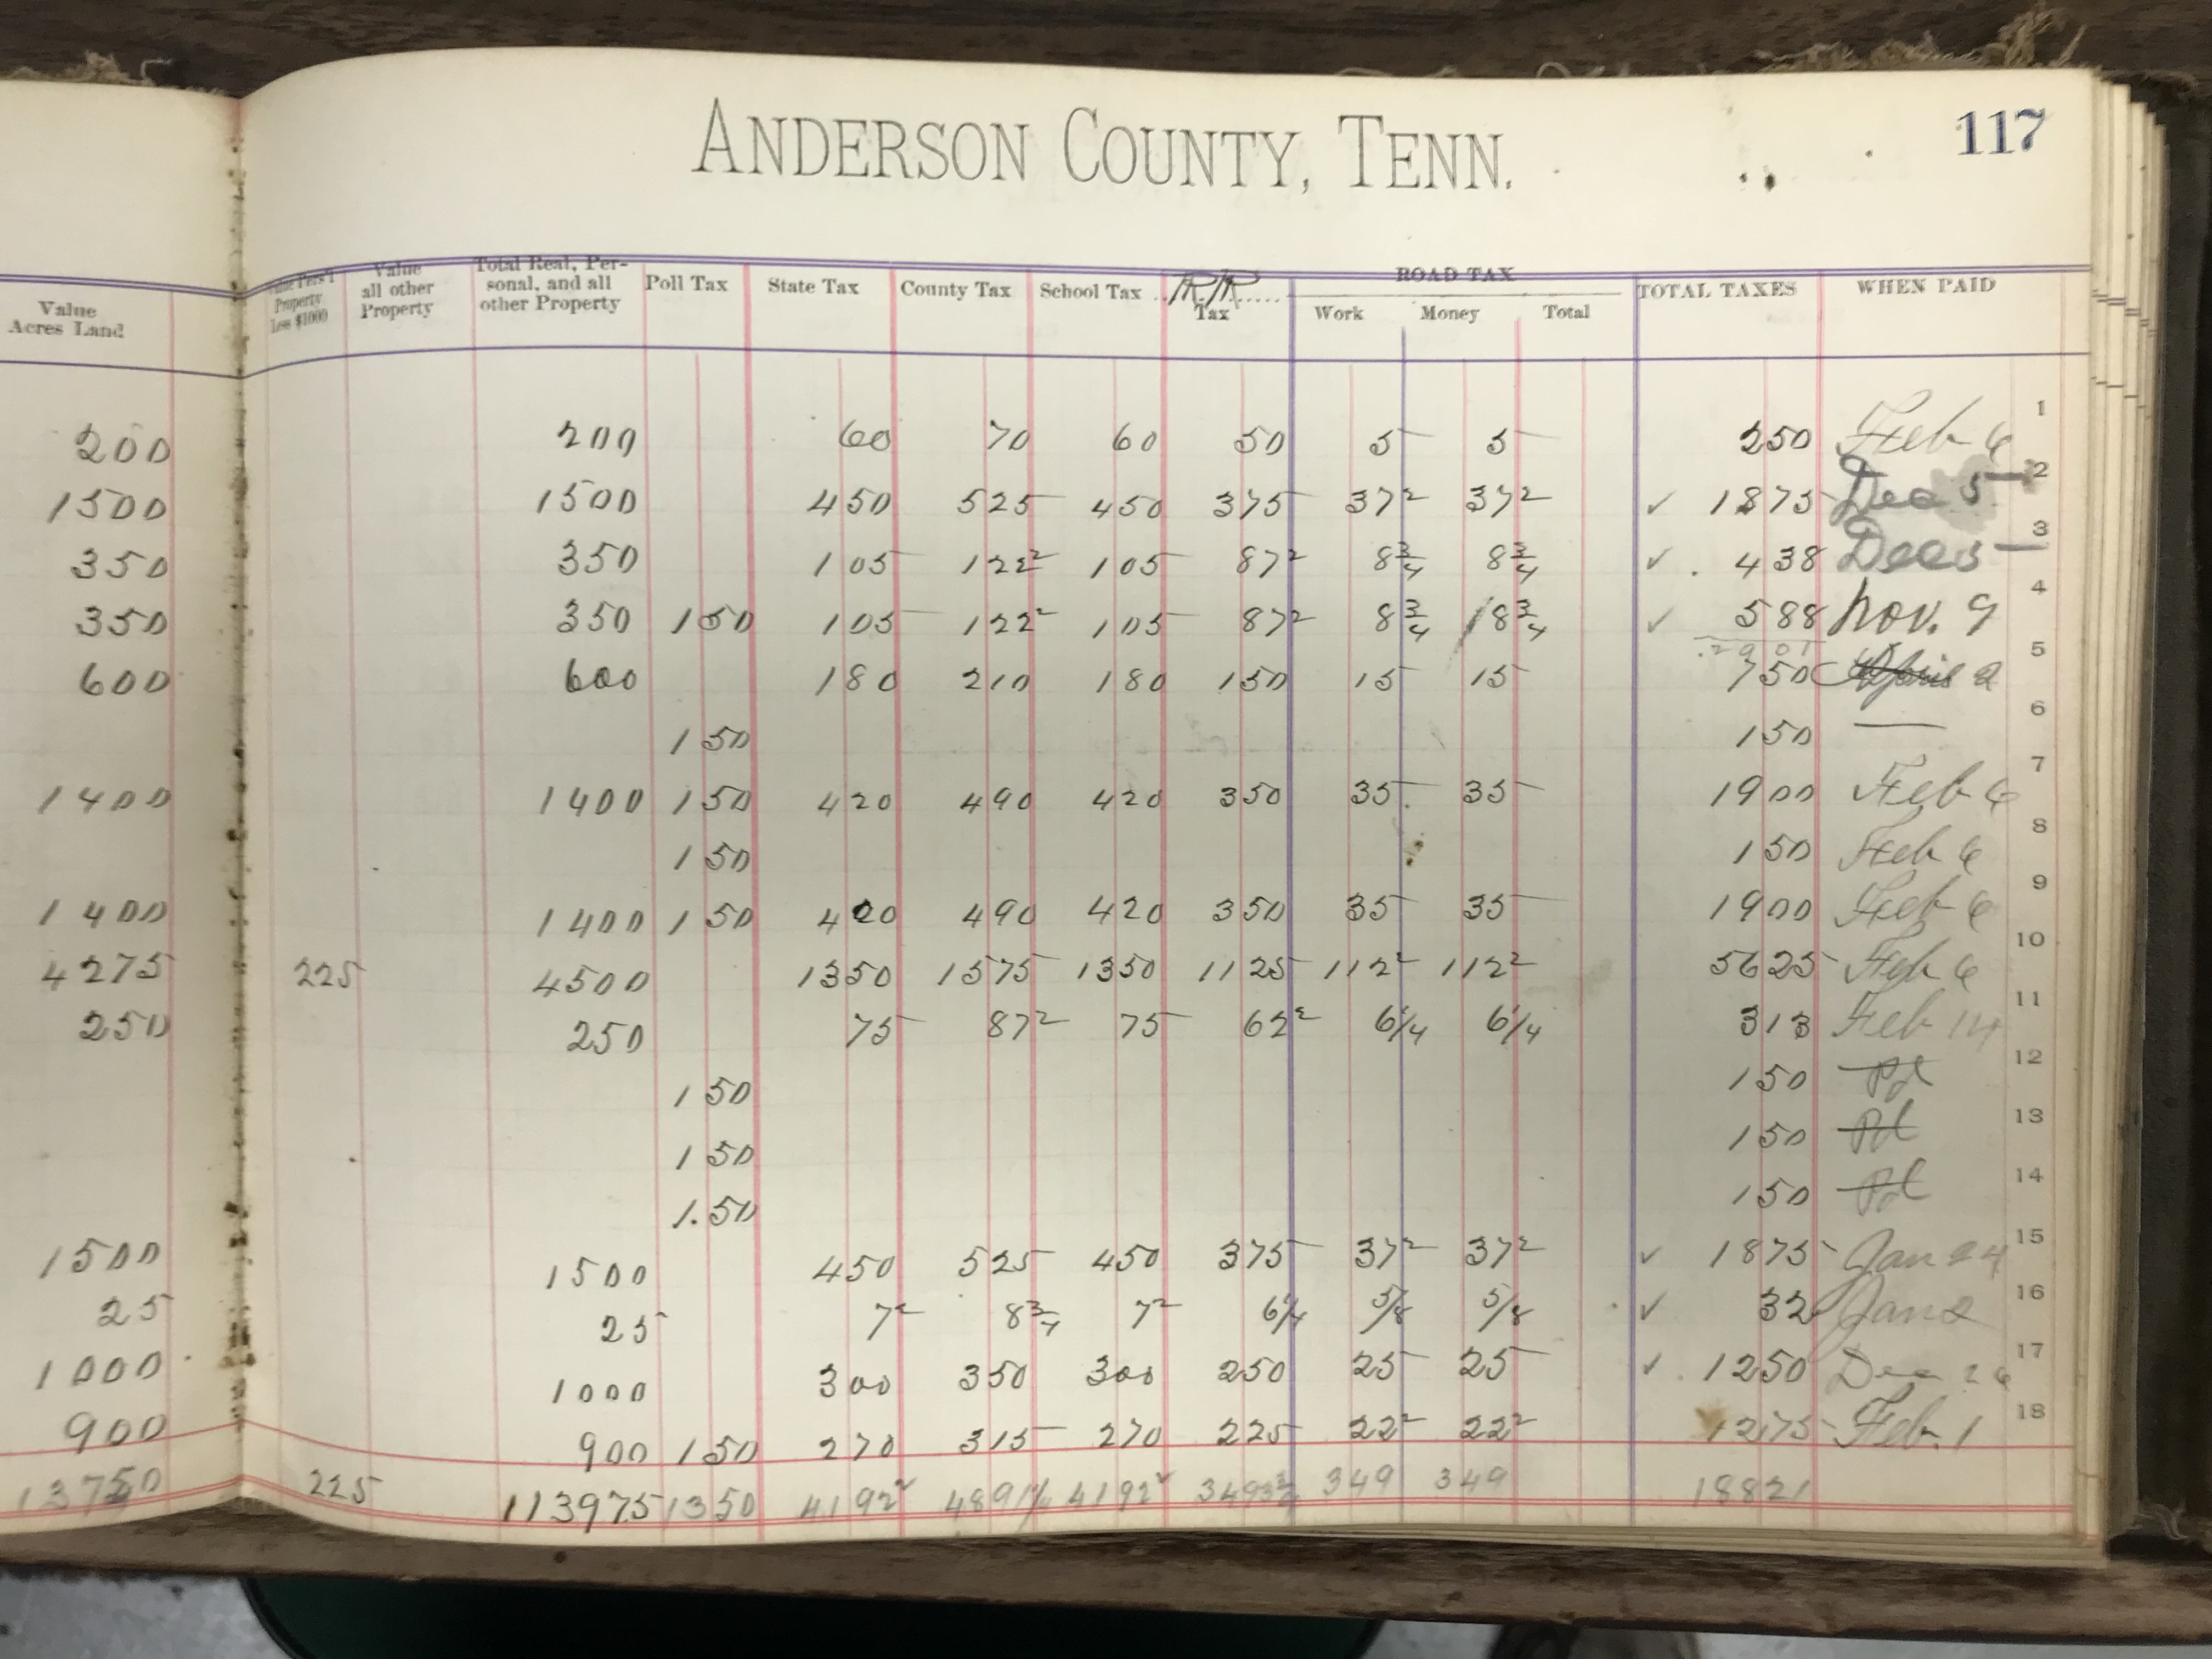 ANDERSON COUNTY, TENN. 117
Value Acres Land | Value Pers'l Property Less $1000 | Value all other Property | Total Real, Personal, and all other Property | Poll Tax | State Tax | County Tax | School Tax | RR Tax | ROAD TAX Work | Money | Total | TOTAL TAXES | WHEN PAID
200 200 60 70 60 50 5 5 250 Feb 6 1
1500 1500 450 525 450 375 37² 37² ✓ 1875 Dec 5 2
350 350 105 122² 105 87² 8¾ 8¾ ✓ 438 Dec 5 3
350 350 150 105 122² 105 87² 8¾ 8¾ ✓ 588 Nov. 9 4
600 600 180 210 180 150 15 15 750 April 2 5
150 150 — 6
1400 1400 150 420 490 420 350 35 35 1900 Feb 6 7
150 150 Feb 6 8
1400 1400 150 420 490 420 350 35 35 1900 Feb 6 9
4275 225 4500 1350 1575 1350 1125 112² 112² 5625 Feb 6 10
250 250 75 87² 75 62² 6¼ 6¼ 313 Feb 14 11
150 150 Pd 12
150 150 Pd 13
1.50 150 Pd 14
1500 1500 450 525 450 375 37² 37² ✓ 1875 Jan 24 15
25 25 7² 8¾ 7² 6¼ 5/8 5/8 ✓ 32 Jan 2 16
1000 1000 300 350 300 250 25 25 ✓ 1250 Dec 26 17
900 900 150 270 315 270 225 22² 22² 1275 Feb. 1 18
13750 225 113975 1350 4192² 4891¼ 4192² 3493¾ 349 349 18821